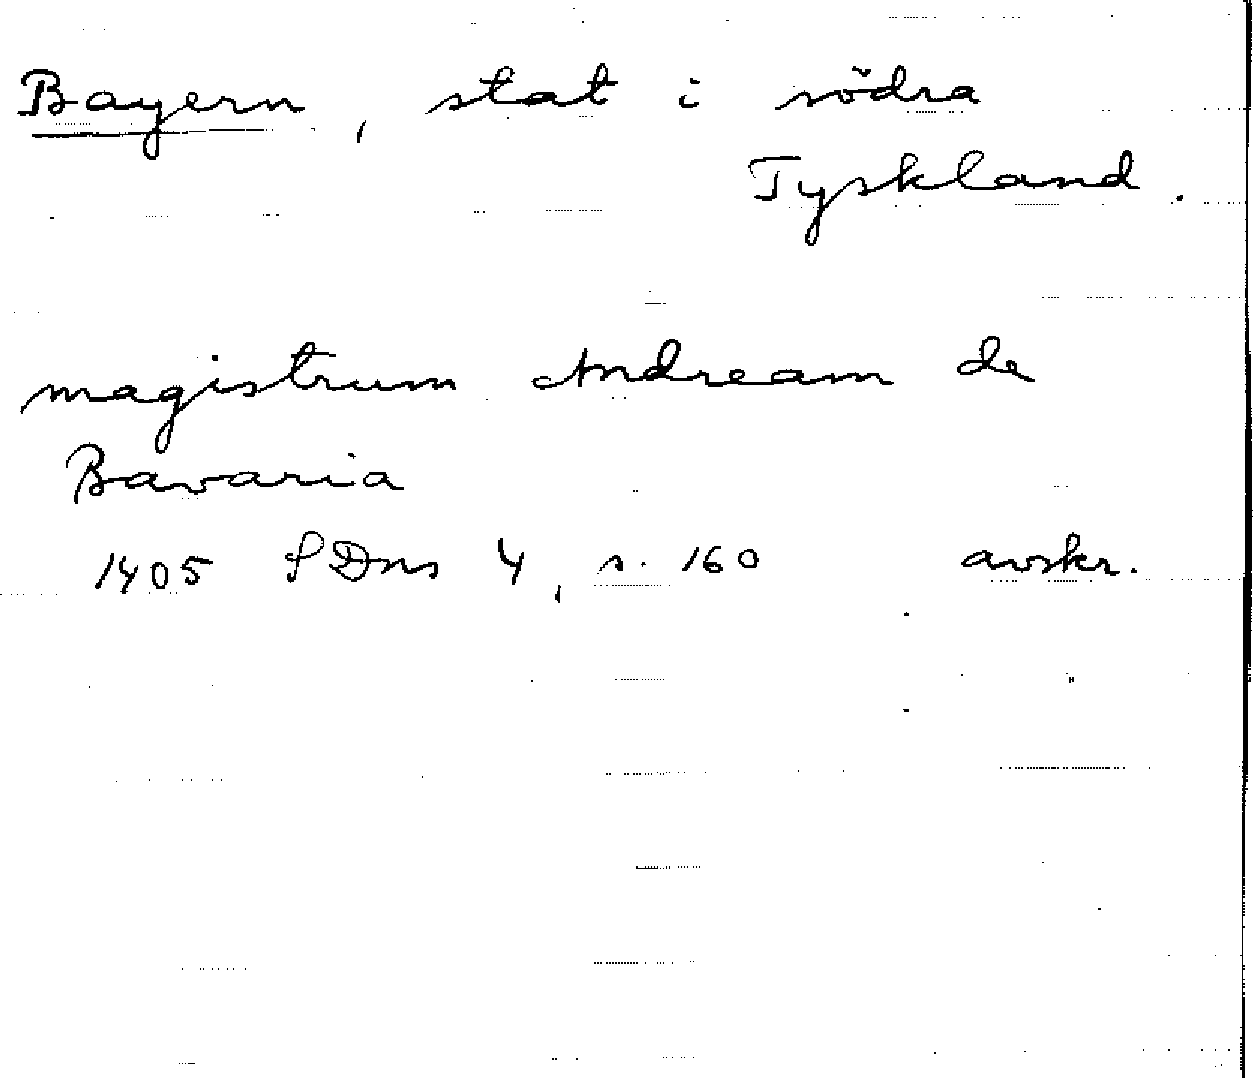 Bayern, stat i södra
Tyskland.
magistrum Andream de
Bavaria
1405 SDns 4, s. 160 avskr.